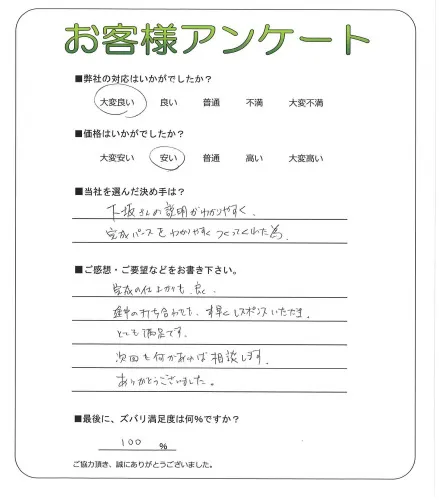 お客様アンケート
■弊社の対応はいかがでしたか？
大変良い 良い 普通 不満 大変不満
■価格はいかがでしたか？
大変安い 安い 普通 高い 大変高い
■当社を選んだ決め手は？
下坂さんの説明がわかりやすく、
完成パースをわかりやすくつくってくれた為
■ご感想・ご要望などをお書き下さい。
完成の仕上がりも良く
途中の打ち合わせも、す早くレスポンスいただき、
とても満足です。
次回も何かあれば相談します。
ありがとうございました。
■最後に、ズバリ満足度は何%ですか？
100 %
ご協力頂き、誠にありがとうございました。